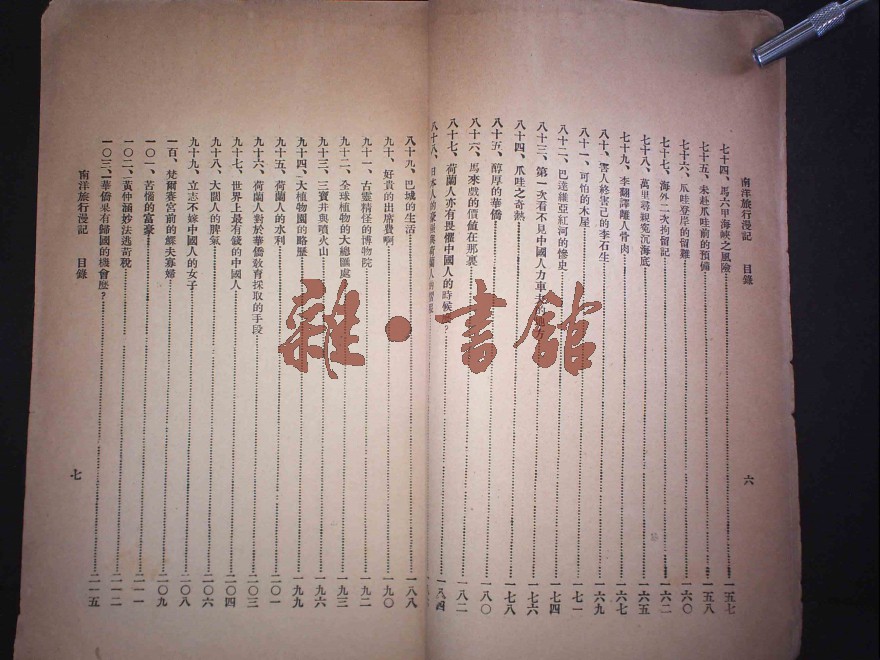 南洋旅行漫記　目錄
七十四、馬六甲海峽之風險 一五七
七十五、未赴爪哇前的預備 一五八
七十六、爪哇登岸的留難 一六〇
七十七、海外二次拘留記 一六二
七十八、萬里尋親竟沉海底 一六五
七十九、李翻譯離人骨肉 一六七
八十、害人終害己的李石生 一六九
八十一、可怕的木屋 一七一
八十二、巴達維亞紅河的慘史 一七六
八十三、第一次看不見中國人力車夫的地方
八十四、爪哇之奇熱 一七八
八十五、醇厚的華僑 一八〇
八十六、馬來戲的價值在那裏 一八二
八十七、荷蘭人亦有畏懼中國人的時候 ? 一八四
八十八、日本人的
六
八十九、巴城的生活 一八八
九十、好貴的出席費啊 一九〇
九十一、古靈精怪的博物院 一九二
九十二、全球植物的大總匯處 一九三
九十三、三寶井與噴火山 一九六
九十四、大植物園的略歷 一九九
九十五、荷蘭人的水利 二〇一
九十六、荷蘭人對於華僑教育採取的手段 二〇三
九十七、世界上最有錢的中國人 二〇四
九十八、大闊人的脾氣 二〇六
九十九、立志不嫁中國人的女子 二〇八
一百、梵爾賽宮前的鰥夫寡婦 二〇九
一〇一、苦惱的富豪 二一一
一〇二、黃仲涵妙法逃苛稅 二一二
一〇三、華僑果有歸國的機會麽? 二一五
南洋旅行漫記　目錄
七
雜·書館